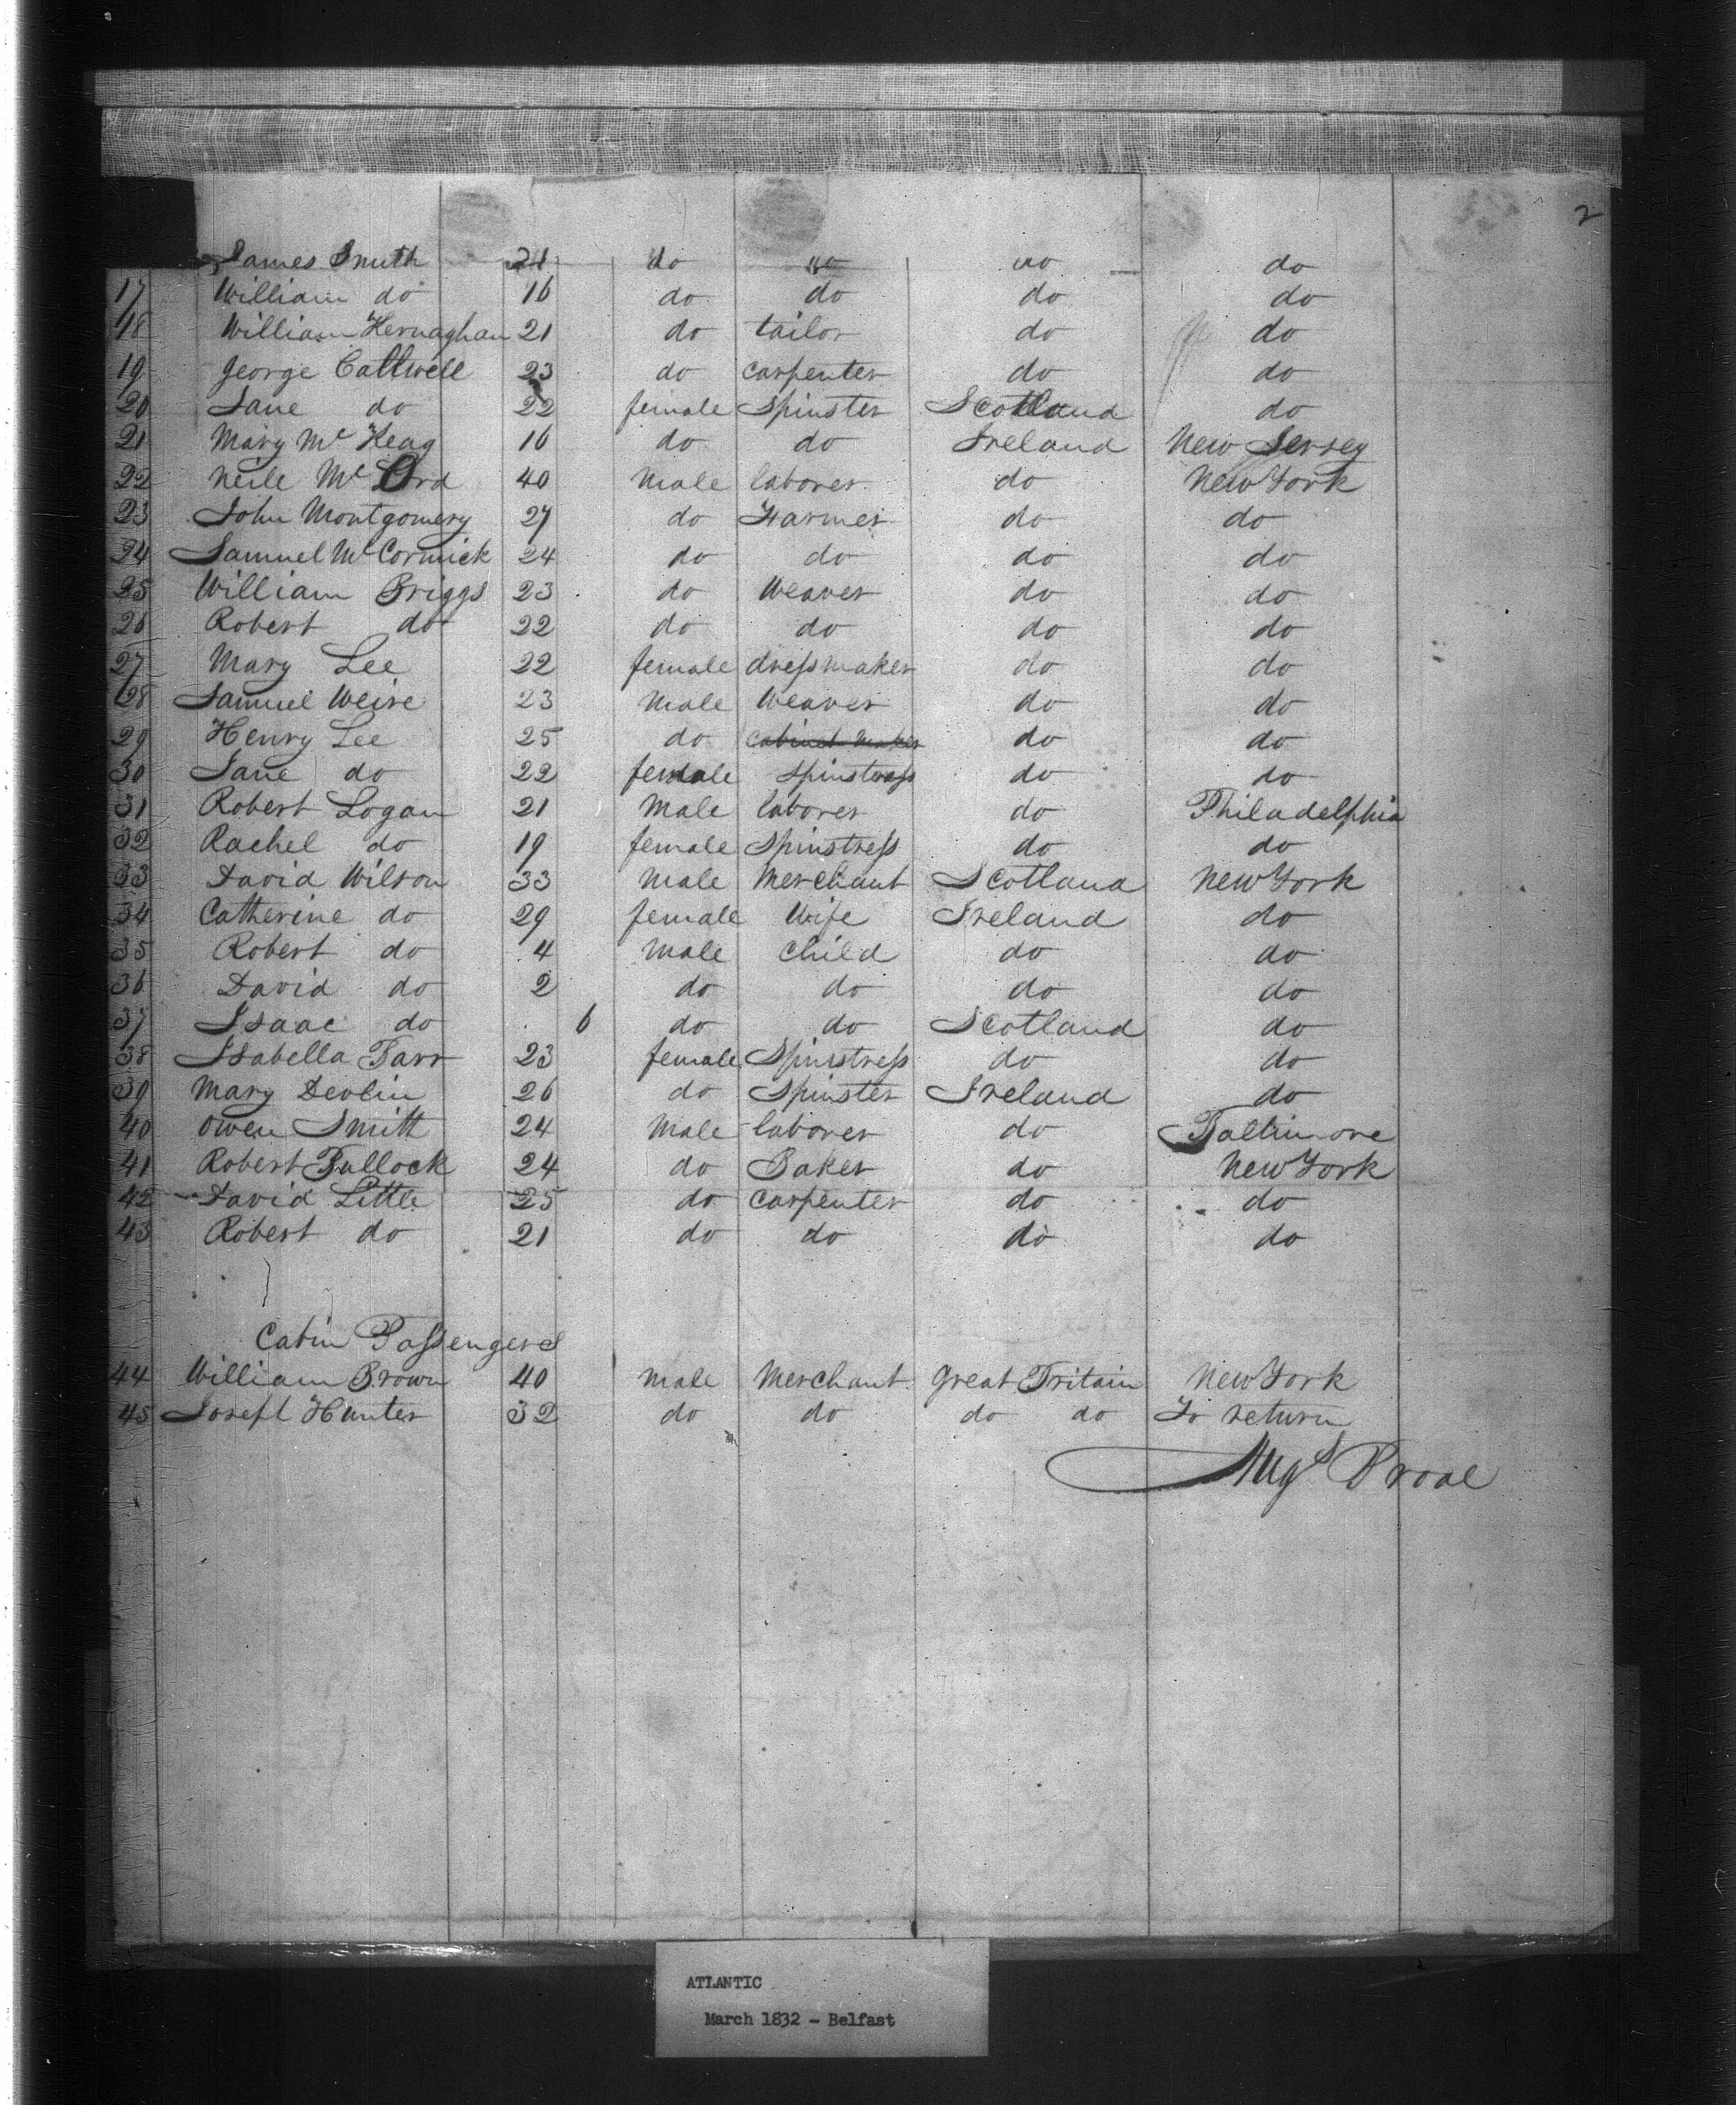 2
James Smith 21 do do do do
17 William do 16 do do do do
18 William Kernaghan 21 do tailor do do
19 George Caldwell 23 do carpenter do do
20 Jane do 22 female Spinster Scotland do
21 Mary Mc Keag 16 do do Ireland New Jersey
22 Neile Mc Ord 40 Male laborer do New York
23 John Montgomery 27 do Farmer do do
24 Samuel McCormick 24 do do do do
25 William Briggs 23 do Weaver do do
26 Robert do 22 do do do do
27 Mary Lee 22 female dressmaker do do
28 Samuel Weire 23 Male Weaver do do
29 Henry Lee 25 do cabinet maker do do
30 Jane do 22 female Spinstress do do
31 Robert Logan 21 Male laborer do Philadelphia
32 Rachel do 19 female Spinstress do do
33 David Wilson 33 Male Merchant Scotland New York
34 Catherine do 29 female Wife Ireland do
35 Robert do 4 Male Child do do
36 David do 2 do do do do
37 Isaac do 6 do do Scotland do
38 Isabella Barr 23 female Spinstress do do
39 Mary Devlin 26 do Spinster Ireland do
40 Owen Smith 24 Male laborer do Baltimore
41 Robert Bullock 24 do Baker do New York
42 David Little 25 do carpenter do do
43 Robert do 21 do do do do
Cabin Passengers
44 William Brown 40 Male Merchant Great Britain New York
45 Joseph Hunter 32 do do do do To return
Augs Proal
ATLANTIC
March 1832 - Belfast